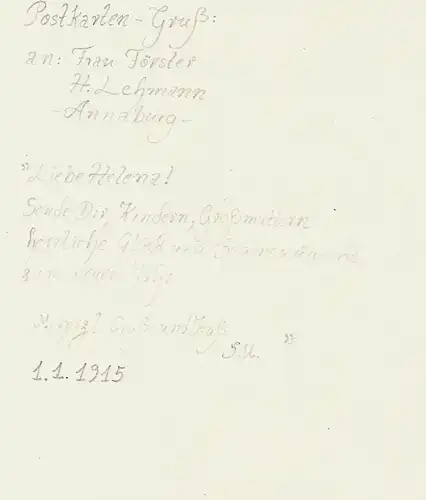 Postkarten-Gruß:
an: Frau Förster
H. Lehmann
-Annaburg-
"Liebe Helena!
Sende Dir, Kindern, Großmuttern
herzliche Glück und
zum neuen Jahr
M. herzl. Gruß und
S.U. "
1.1.1915